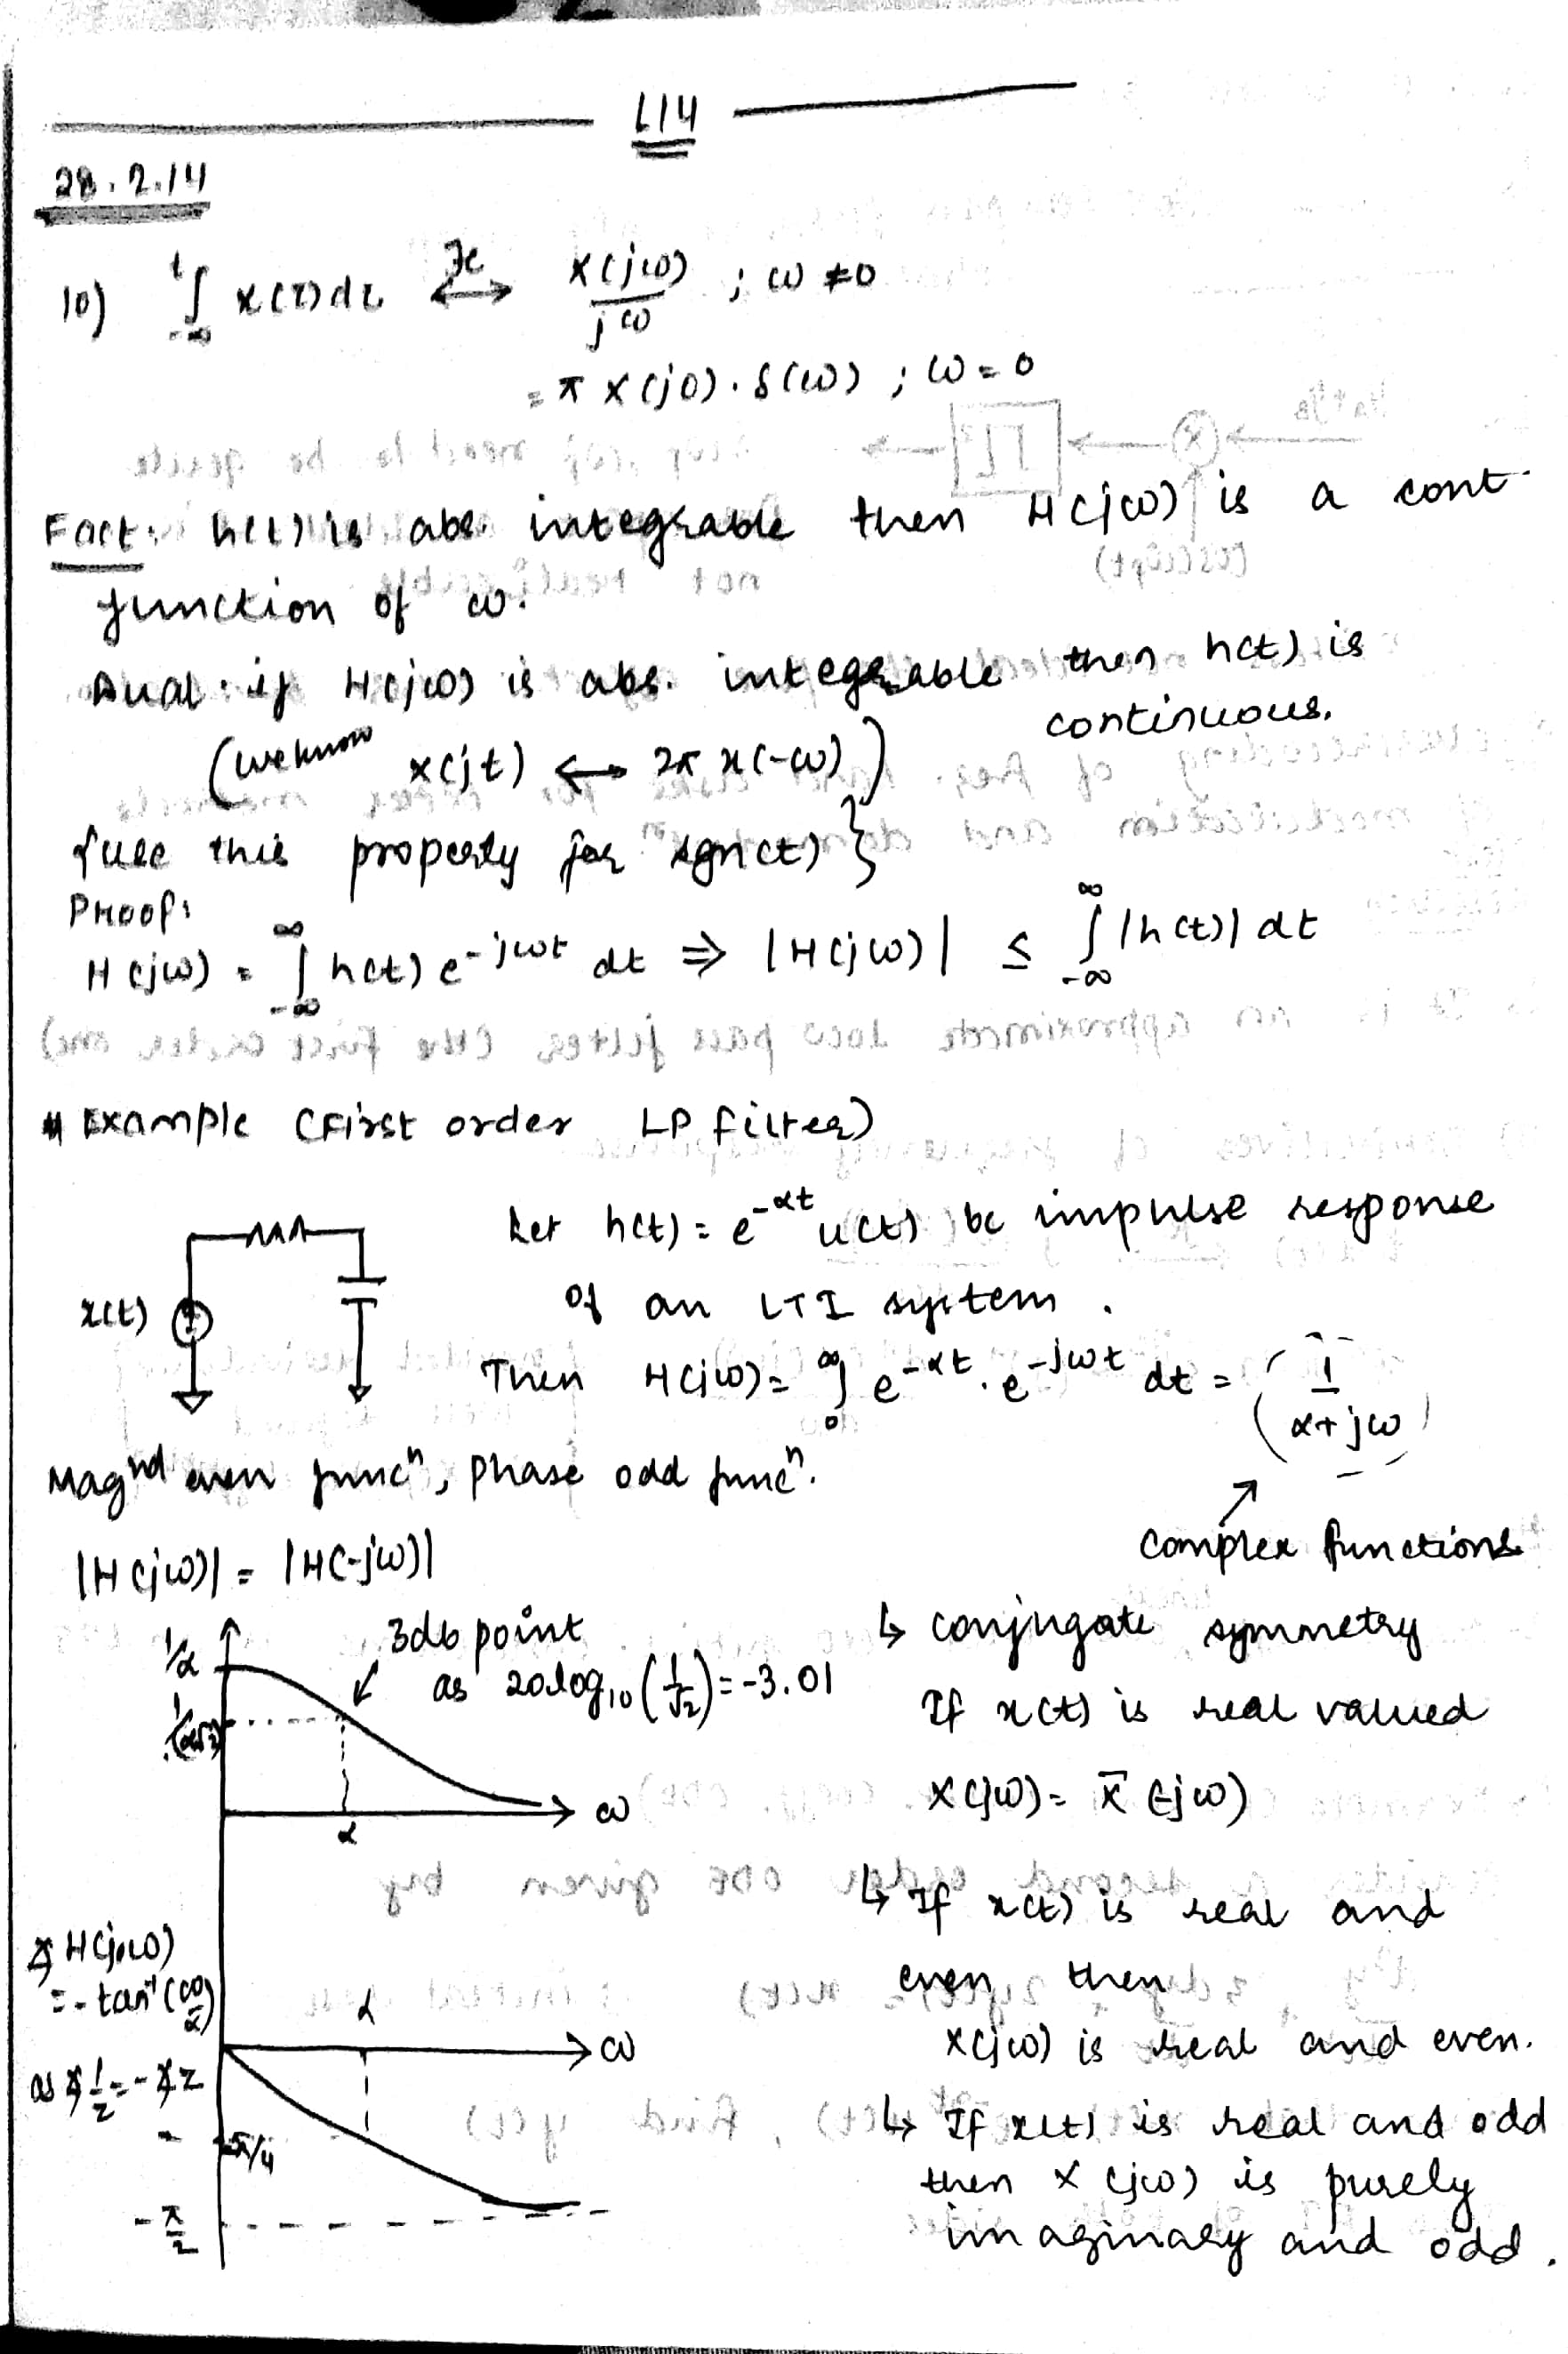 L14
28.2.14
10) ∫_{-∞}^{t} x(τ)dτ ↔ X(jω)/jω ; ω ≠ 0
= π X(j0). δ(ω) ; ω = 0
Fact: h(t) is abs. integrable then H(jω) is a cont.
function of ω.
Dual: if H(jω) is abs. integrable then h(t) is
continuous.
(we know X(jt) ↔ 2π x(-ω))
{use this property for sgn(t)}
Proof:
H(jω) = ∫_{-∞}^{∞} h(t) e^{-jωt} dt ⇒ |H(jω)| ≤ ∫_{-∞}^{∞} |h(t)| dt
# Example (First order LP filter)
Let h(t) = e^{-αt} u(t) be impulse response
x(t)
of an LTI system.
Then H(jω) = ∫_{0}^{∞} e^{-αt}. e^{-jωt} dt = (1/(α+jω))
Mag^{nd} even func^{n}, phase odd func^{n}.
complex functions
|H(jω)| = |H(-jω)|
1/α
3db point
as 20log₁₀(1/√2) = -3.01
1/(α√2)
α
ω
↳ conjugate symmetry
If x(t) is real valued
X(jω) = X̄(-jω)
↳ If x(t) is real and
even then
X(jω) is real and even.
↳ If x(t) is real and odd
then X(jω) is purely
imaginary and odd.
∡H(jω)
= -tan⁻¹(ω/α)
α
ω
as ∡1/z = -∡z
-π/4
-π/2